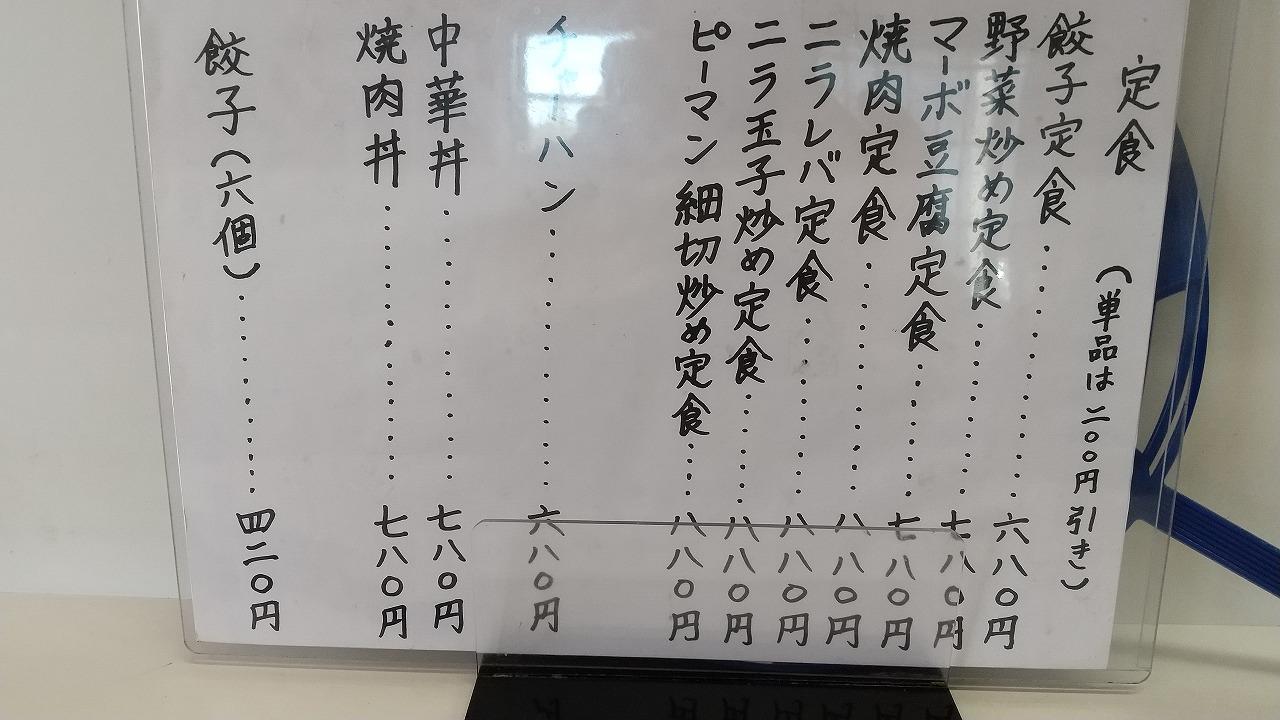 定食
(単品は二〇〇円引き)
餃子定食・・・・・・・・・・・・六八〇円
野菜炒め定食・・・・・・・・七八〇円
マーボ豆腐定食・・・・・・・七八〇円
焼肉定食・・・・・・・・・・・八八〇円
ニラレバ定食・・・・・・・・・八八〇円
ニラ玉子炒め定食・・・・・・八八〇円
ピーマン細切炒め定食・・・・八八〇円
チャーハン・・・・・・・・・・・・六八〇円
中華丼・・・・・・・・・・・・・七八〇円
焼肉丼・・・・・・・・・・・・・七八〇円
餃子(六個)・・・・・・・・・・四二〇円